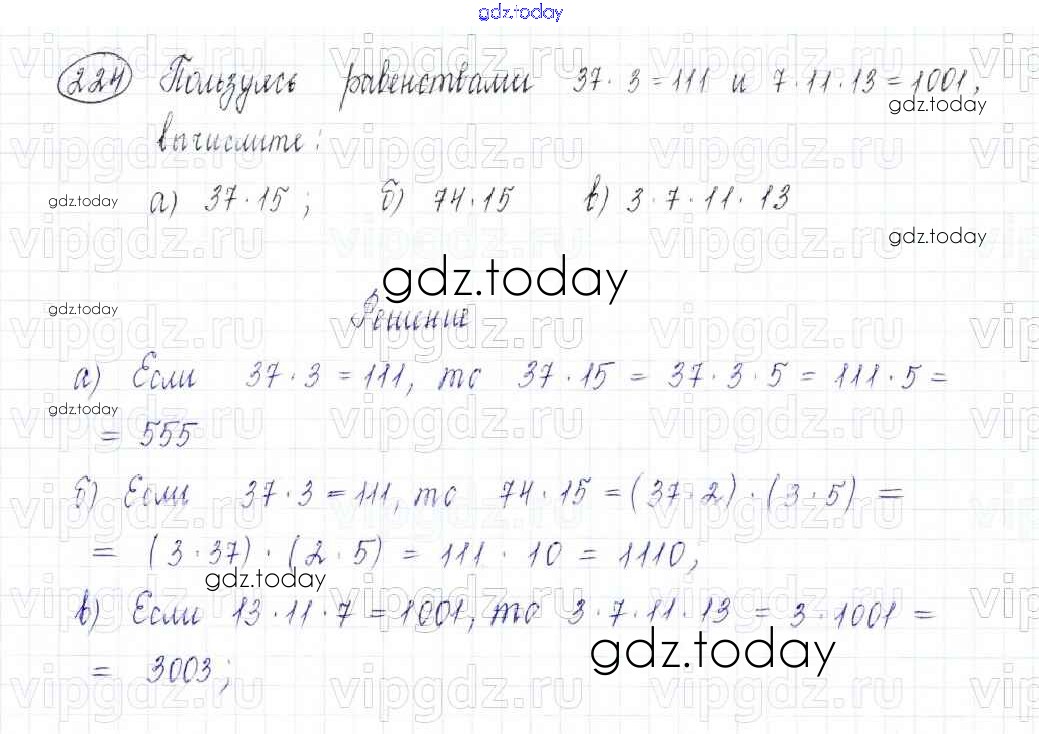 gdz.today
224 Пользуясь равенствами 37 · 3 = 111 и 7 · 11 · 13 = 1001,
gdz.today
вычислите:
gdz.today а) 37 · 15 ; б) 74 · 15 в) 3 · 7 · 11 · 13
gdz.today
gdz.today
gdz.today
Решение
а) Если 37 · 3 = 111, то 37 · 15 = 37 · 3 · 5 = 111 · 5 =
gdz.today
= 555
б) Если 37 · 3 = 111, то 74 · 15 = (37 · 2) · (3 · 5) =
= (3 · 37) · (2 · 5) = 111 · 10 = 1110;
gdz.today
в) Если 13 · 11 · 7 = 1001, то 3 · 7 · 11 · 13 = 3 · 1001 =
gdz.today
= 3003;
vipgdz.ru